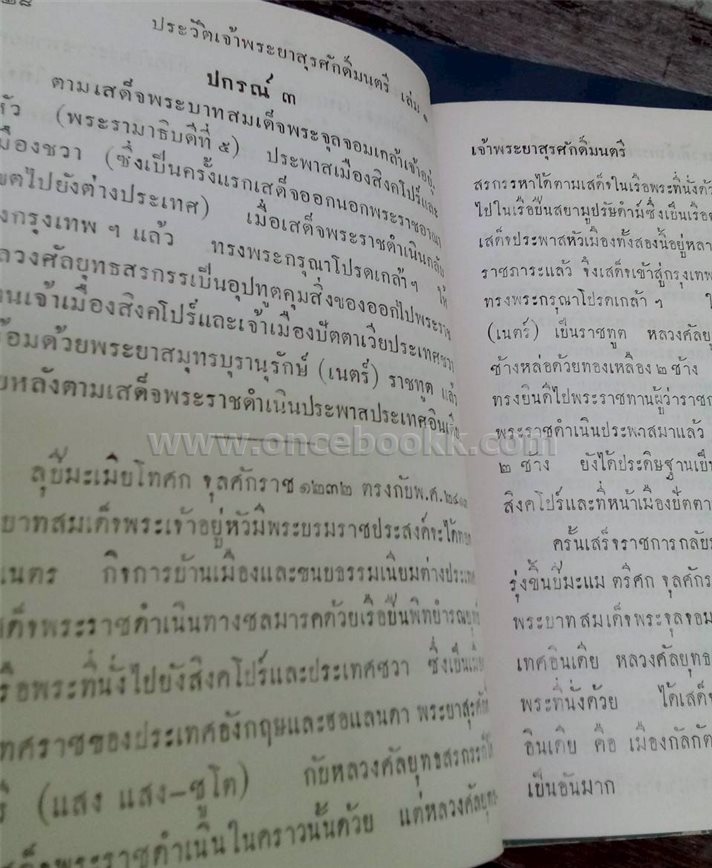 ๒๘
ประวัติเจ้าพระยาสุรศักดิ์มนตรี เล่ม ๑
ปกรณ์ ๓
ตามเสด็จพระบาทสมเด็จพระจุลจอมเกล้าเจ้าอยู่
หัว (พระรามาธิบดีที่ ๕) ประพาสเมืองสิงคโปร์และ
เมืองชวา (ซึ่งเป็นครั้งแรกเสด็จออกนอกพระราชอาณา
เขตไปยังต่างประเทศ) เมื่อเสด็จพระราชดำเนินกลับ
กรุงเทพ ฯ แล้ว ทรงพระกรุณาโปรดเกล้าฯ ให้
หลวงศัลยุทธสรกรรเป็นอุปทูตคุมสิ่งของออกไปพระราช
ทานเจ้าเมืองสิงคโปร์และเจ้าเมืองปัตตาเวียประเทศชวา
พร้อมด้วยพระยาสมุทรบุรานุรักษ์ (เนตร์) ราชทูต แล้ว
ภายหลังตามเสด็จพระราชดำเนินประพาสประเทศอินเดีย
www.oncebookk.com
ลุปีมะเมียโทศก จุลศักราช ๑๒๓๒ ตรงกับพ.ศ.
บาทสมเด็จพระเจ้าอยู่หัวมีพระบรมราชประสงค์จะได้ทอด
เนตร กิจการบ้านเมืองและขนบธรรมเนียมต่างประเทศ
เสด็จพระราชดำเนินทางชลมารคด้วยเรือปืนพิทยัมรณยุทธ
เรือพระที่นั่งไปยังสิงคโปร์และประเทศชวา ซึ่งเป็นเมือง
เทศราชของประเทศอังกฤษและฮอแลนดา พระยาสุรศักดิ์
(แสง แสง-ชูโต) กับหลวงศัลยุทธสรกรรก็ได้
เสด็จพระราชดำเนินในคราวนั้นด้วย แต่หลวงศัลยุทธ
เจ้าพระยาสุรศักดิ์มนตรี
สรกรรหาได้ตามเสด็จในเรือพระที่นั่งด้ว
ไปในเรือปืนสยามูปรัษดัมภ์ซึ่งเป็นเรือ
เสด็จประพาสหัวเมืองทั้งสองนี้อยู่หลา
ราชภาระแล้ว จึงเสด็จเข้าสู่กรุงเทพ
ทรงพระกรุณาโปรดเกล้า ฯ ใ
(เนตร์) เป็นราชทูต หลวงศัลยุ
ช้างหล่อด้วยทองเหลือง ๒ ช้าง
ทรงยินดีไปพระราชทานผู้ว่าราชก
พระราชดำเนินประพาสมาแล้ว
๒ ช้าง ยังได้ประดิษฐานเป็น
สิงคโปร์และที่หน้าเมืองปัตตา
ครั้นเสร็จราชการกลับม
รุ่งขึ้นปีมะแม ตรีศก จุลศักร
พระบาทสมเด็จพระจุลจอม
เทศอินเดีย หลวงศัลยุทธ
พระที่นั่งด้วย ได้เสด็จ
อินเดีย คือ เมืองกัลกัต
เป็นอันมาก